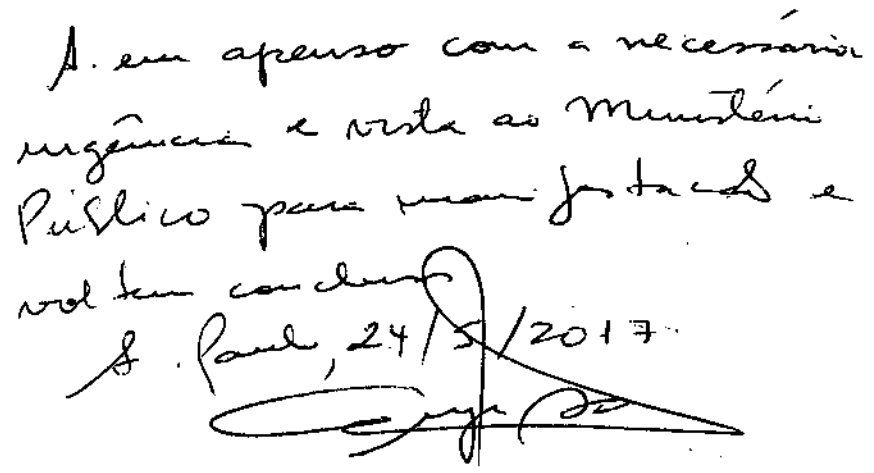 A. em apenso com a necessária
urgência e vista ao Ministério
Público para manifestação e
voltem conclusos
S. Paulo, 24/5/2017